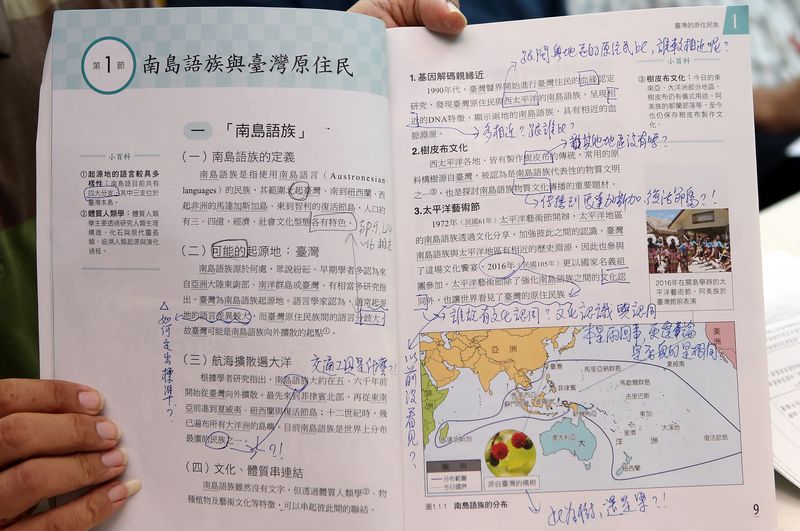 第1節
南島語族與臺灣原住民
一 「南島語族」
小百科
①起源地的語言較具多
樣性:南島語目前共有
四大分支,其中三支位於
臺灣本島。
②體質人類學:體質人類
學主要透過研究人類生理
構造、化石與現代靈長
類,追溯人類起源與演化
過程。
(一)南島語族的定義
南島語族是指使用南島語言(Austronesian
languages)的民族,其範圍北起臺灣、南到紐西蘭、西
起非洲的馬達加斯加島、東到智利的復活節島,人口約
有三、四億,經濟、社會文化型態各有特色。
(二)可能的起源地:臺灣
南島語族源於何處,眾說紛紜,早期學者多認為來
自亞洲大陸東南部、南洋群島或臺灣。有相當多研究指
出,臺灣為南島語族起源地。語言學家認為,通常起源
地的語言差異較大,而臺灣原住民族間的語言分歧大,
故臺灣可能是南島語族向外擴散的起點①。
如何定出標準?
(三)航海擴散遍大洋
交通工具是什麼?!
根據學者研究指出,南島語族大約在五、六千年前
開始從臺灣向外擴散,最先來到菲律賓北部,再從東南
亞前進到夏威夷、紐西蘭與復活節島;十二世紀時,幾
已遍布所有大洋洲的島嶼。目前南島語族是世界上分布
最廣的民族之一。
?!
(四)文化、體質串連結
南島語族雖然沒有文字,但透過體質人類學②、物
種植物及藝術文化等特徵,可以串起彼此間的聯結。
1
臺灣的原住民族
1
跟問與地區的原住民比,誰較相近呢?
1.基因解碼親緣近
1990年代,臺灣醫界開始進行臺灣住民的血緣認定
研究,發現臺灣原住民與西太平洋的南島語族,呈現相
近的DNA特徵,顯示兩地的南島語族,具有相近的血
脈淵源。
多相近?跟誰比?
難其他地區沒有嗎?
2.樹皮布文化
西太平洋各地,皆有製作樹皮布的傳統,常用的原
料構樹源自臺灣,被認為是南島語族代表性的物質文明
之一③,也是探討南島語族物質文化傳播的重要題材。
傳播到馬達加斯加,復活節島?!
3.太平洋藝術節
1972年(民國61年)太平洋藝術節開辦,太平洋地區
的南島語族透過文化分享,加強彼此之間的認識。臺灣
南島語族與太平洋地區有相近的歷史淵源,因此也參與
了這場文化饗宴,2016年(民國105年)更以國家名義組
團參加。太平洋藝術節除了強化南島語族之間的文化認
同外,也讓世界看見了臺灣的原住民族。
小百科
③樹皮布文化:今日的東
南亞、大洋洲部分地區,
樹皮布仍有儀式用途。阿
美族的都蘭部落等,至今
也仍保存樹皮布製作文
化。
2016年在關島舉辦的太
平洋藝術節,阿美族於
臺灣館前表演
誰故有文化認同?文化認識與認同
本是兩回事,
以前沒看見?
亞洲
臺灣
菲律賓
馬里亞納群島
夏威夷
馬歇爾群島
吉里巴斯
東加
大溪地
斐濟
復活節島
新幾內亞
馬達加斯加
澳大利亞
大洋洲
紐西蘭
圖例
分布範圍
今日國界
原自臺灣的構樹
圖1.1.1 南島語族的分布
此為樹,還是果?!
9